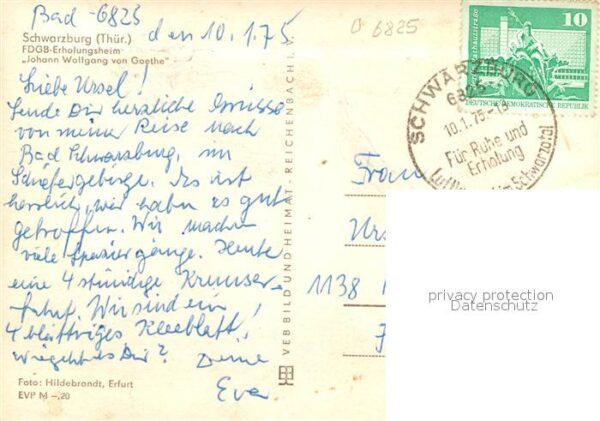 Bad - 6823
den 10.1.75
0 6825
Schwarzburg (Thür.)
FDGB-Erholungsheim
„Johann Wolfgang von Goethe"
Liebe Ursel!
Sende Dir herzliche Grüsse
von meiner Reise nach
Bad Schwarzburg, im
Schiefergebirge. Es ist
herrlich, wir haben es gut
getroffen. Wir machen
viele Spaziergänge. Heute
eine 4 stündige Kremser-
fahrt. Wir sind ein
4 blättriges Kleeblatt!
Wie geht es Dir? Deine
Eva
Foto: Hildebrandt, Erfurt
EVP M -,20
VEB BILD UND HEIMAT · REICHENBACH I. V.
10
DEUTSCHE DEMOKRATISCHE REPUBLIK
SCHWARZBURG
10.1.75
Für Ruhe und
Erholung
im Schwarzatal
Frau
Urs
1138
privacy protection
Datenschutz